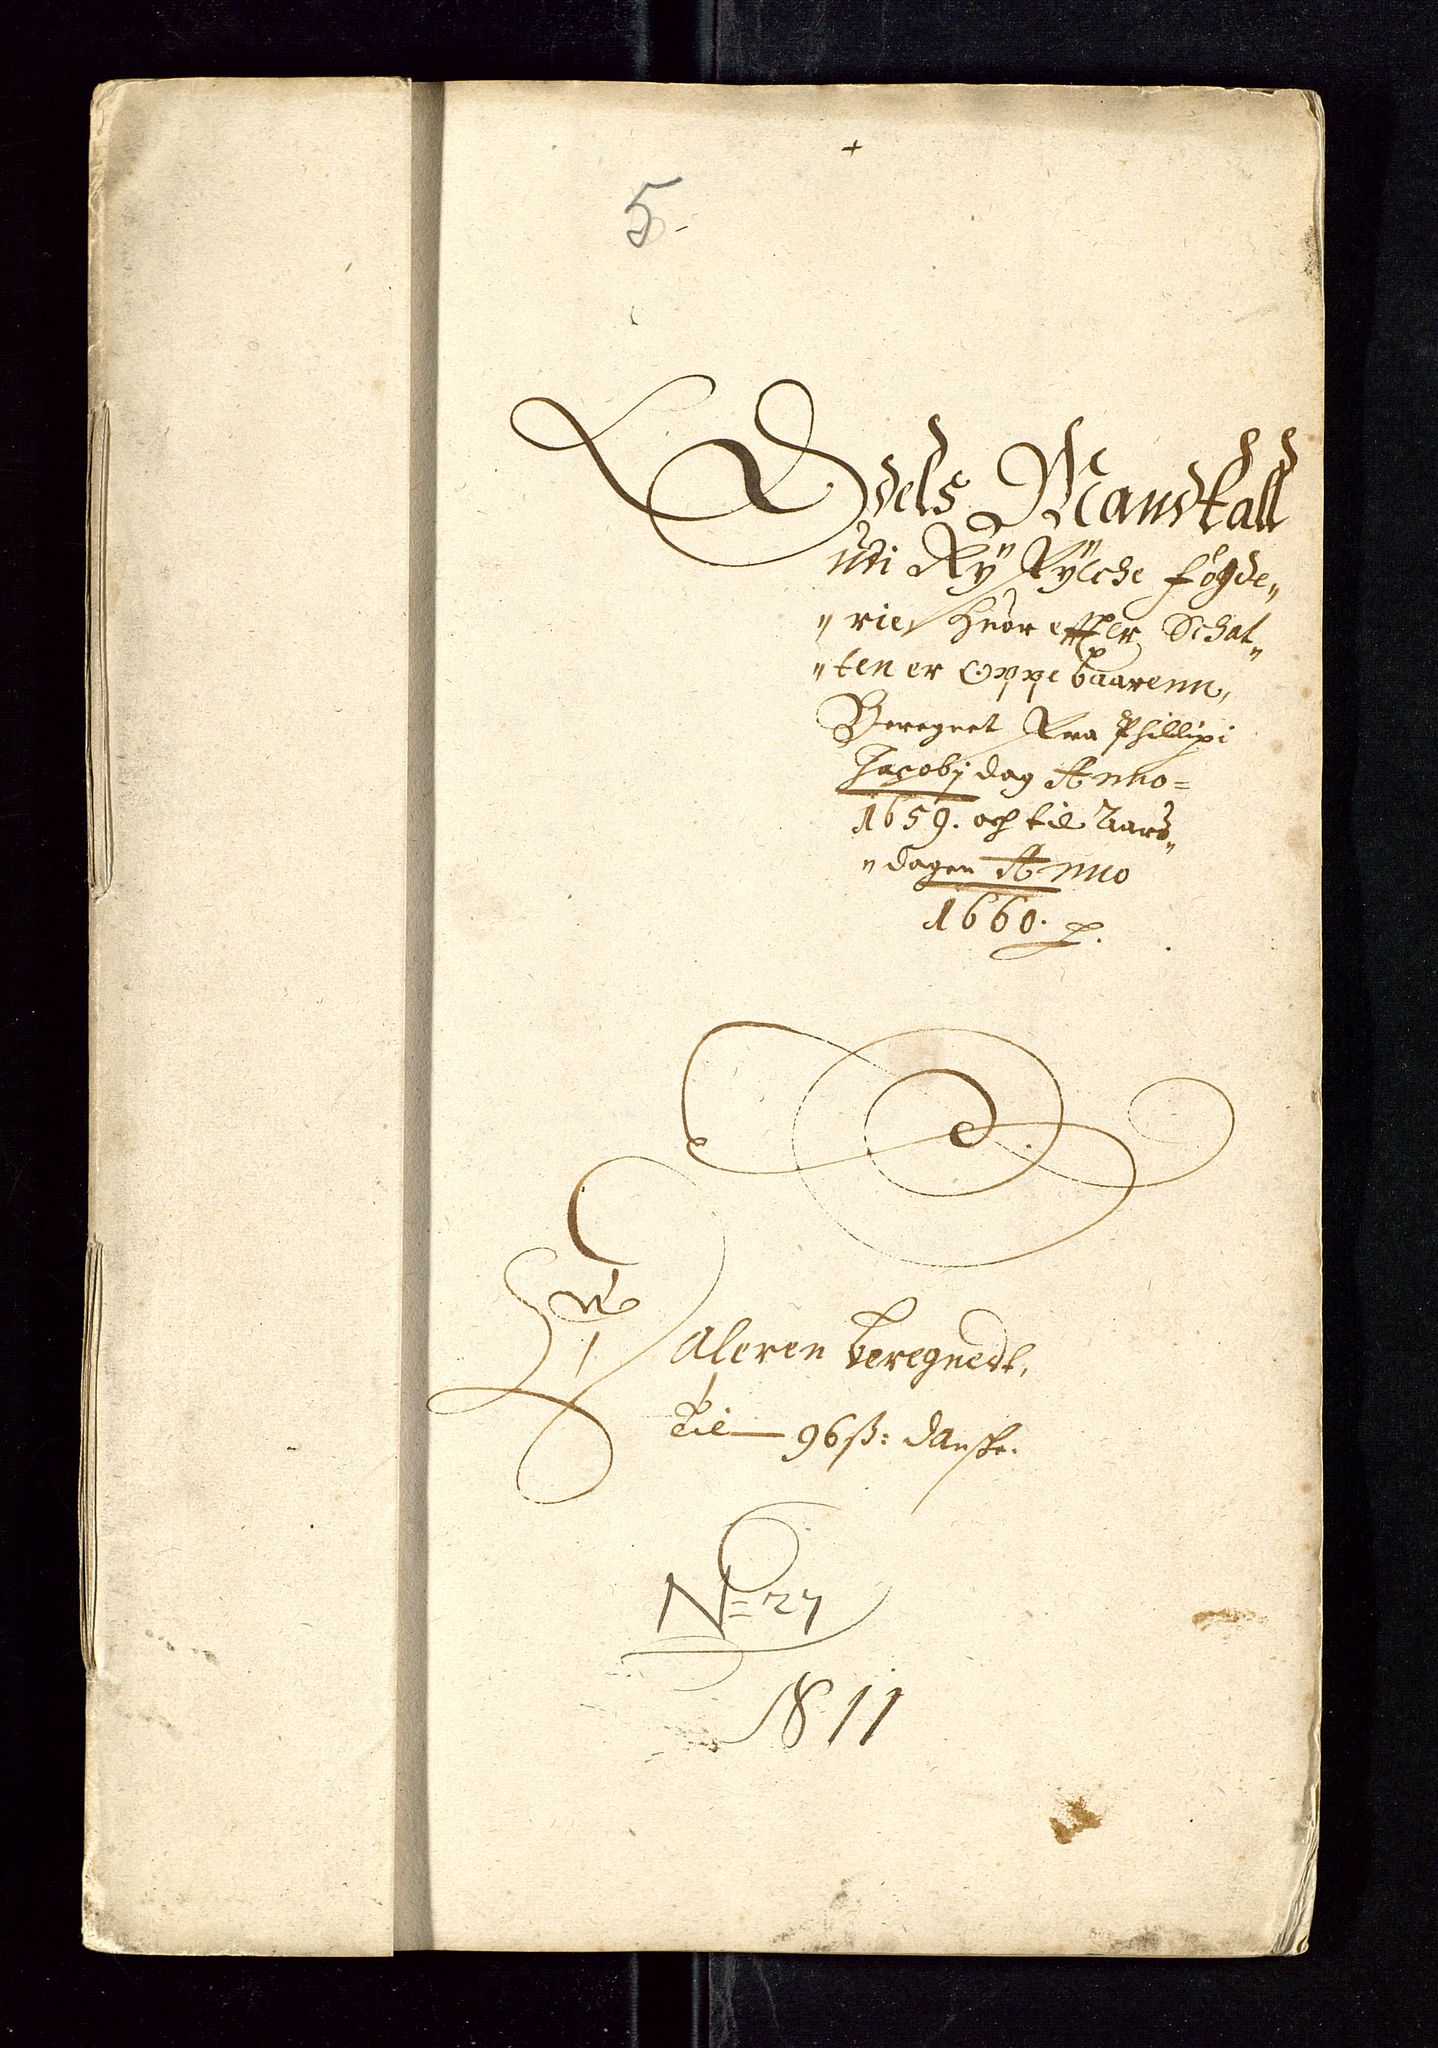 +
5
Odels Mandtall
udi Ry Fylche fogde„
„rie, Huor effter Schat„
„ten er Oppebaarenn,
Beregnet Fra Phillipi
Jacobj dag Anno=
1659. och til Aars„
„dagen Anno
1660. p.
Daleren beregnedt,
Til 96 ß: danske.
N= 27
N 11